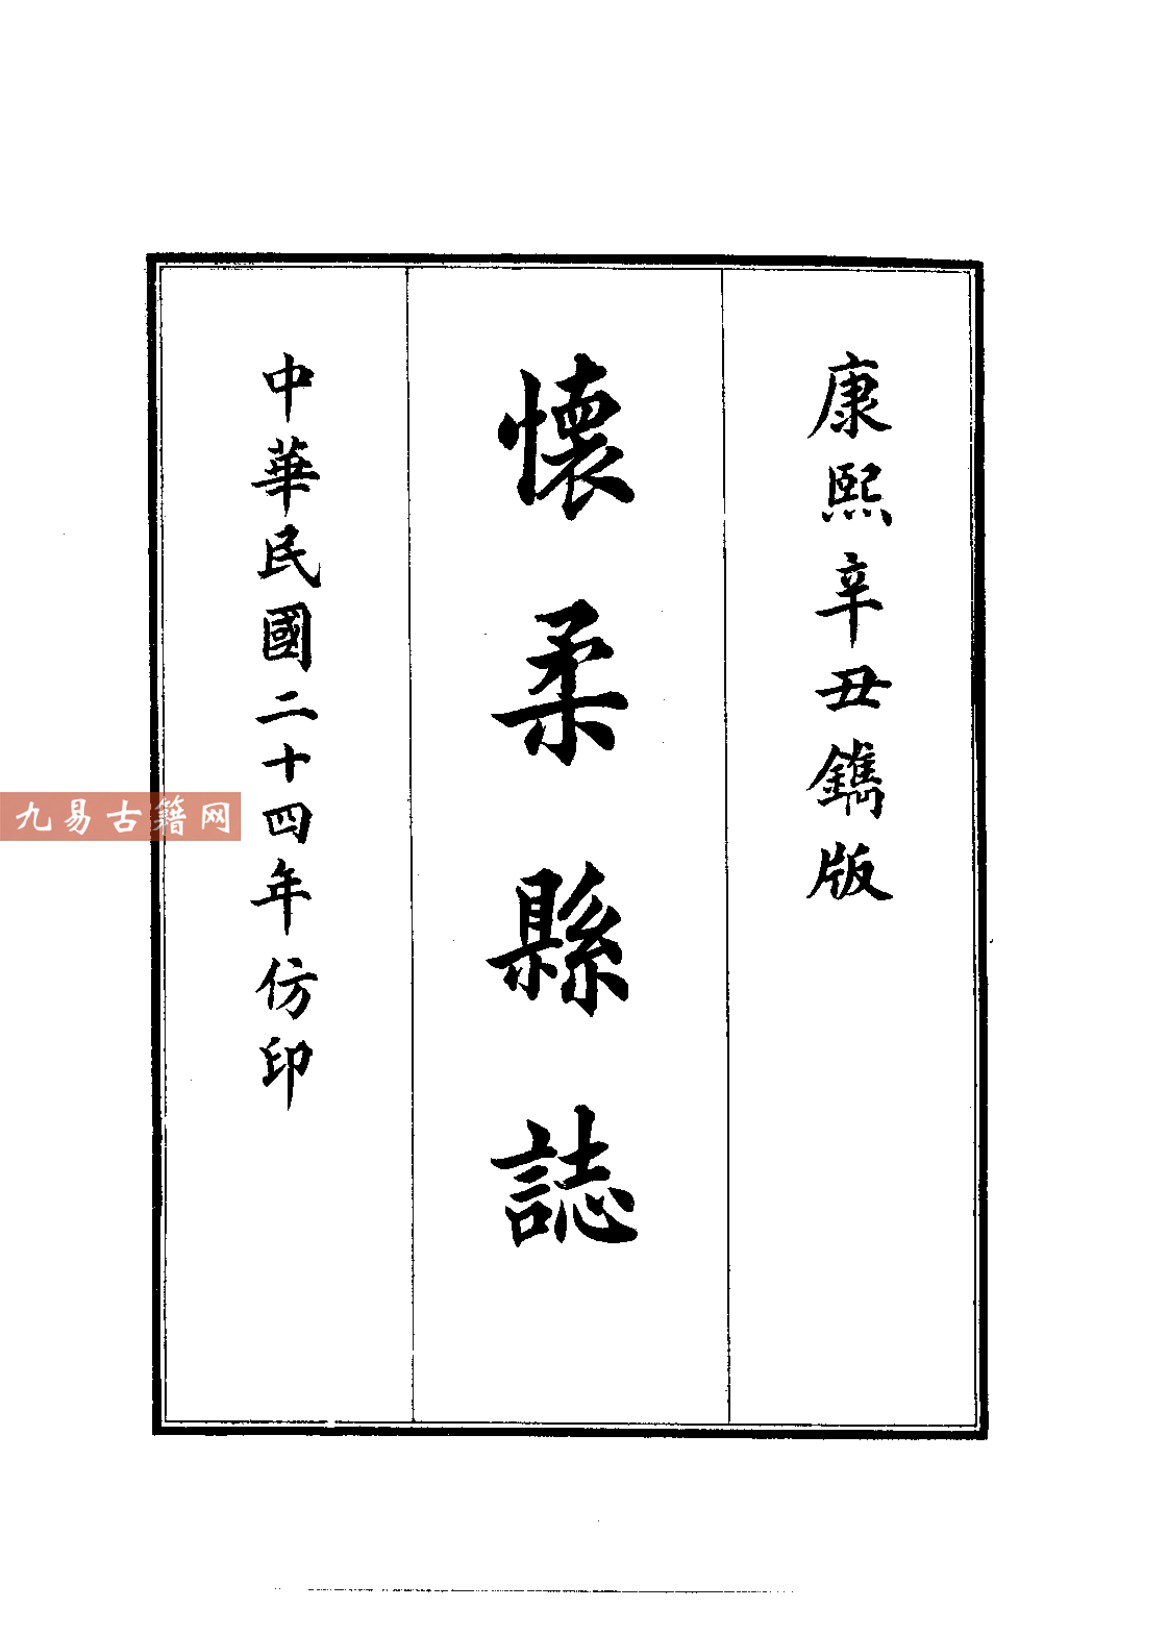 康熙辛丑鐫版
懷柔縣誌
中華民國二十四年仿印
九易古籍网